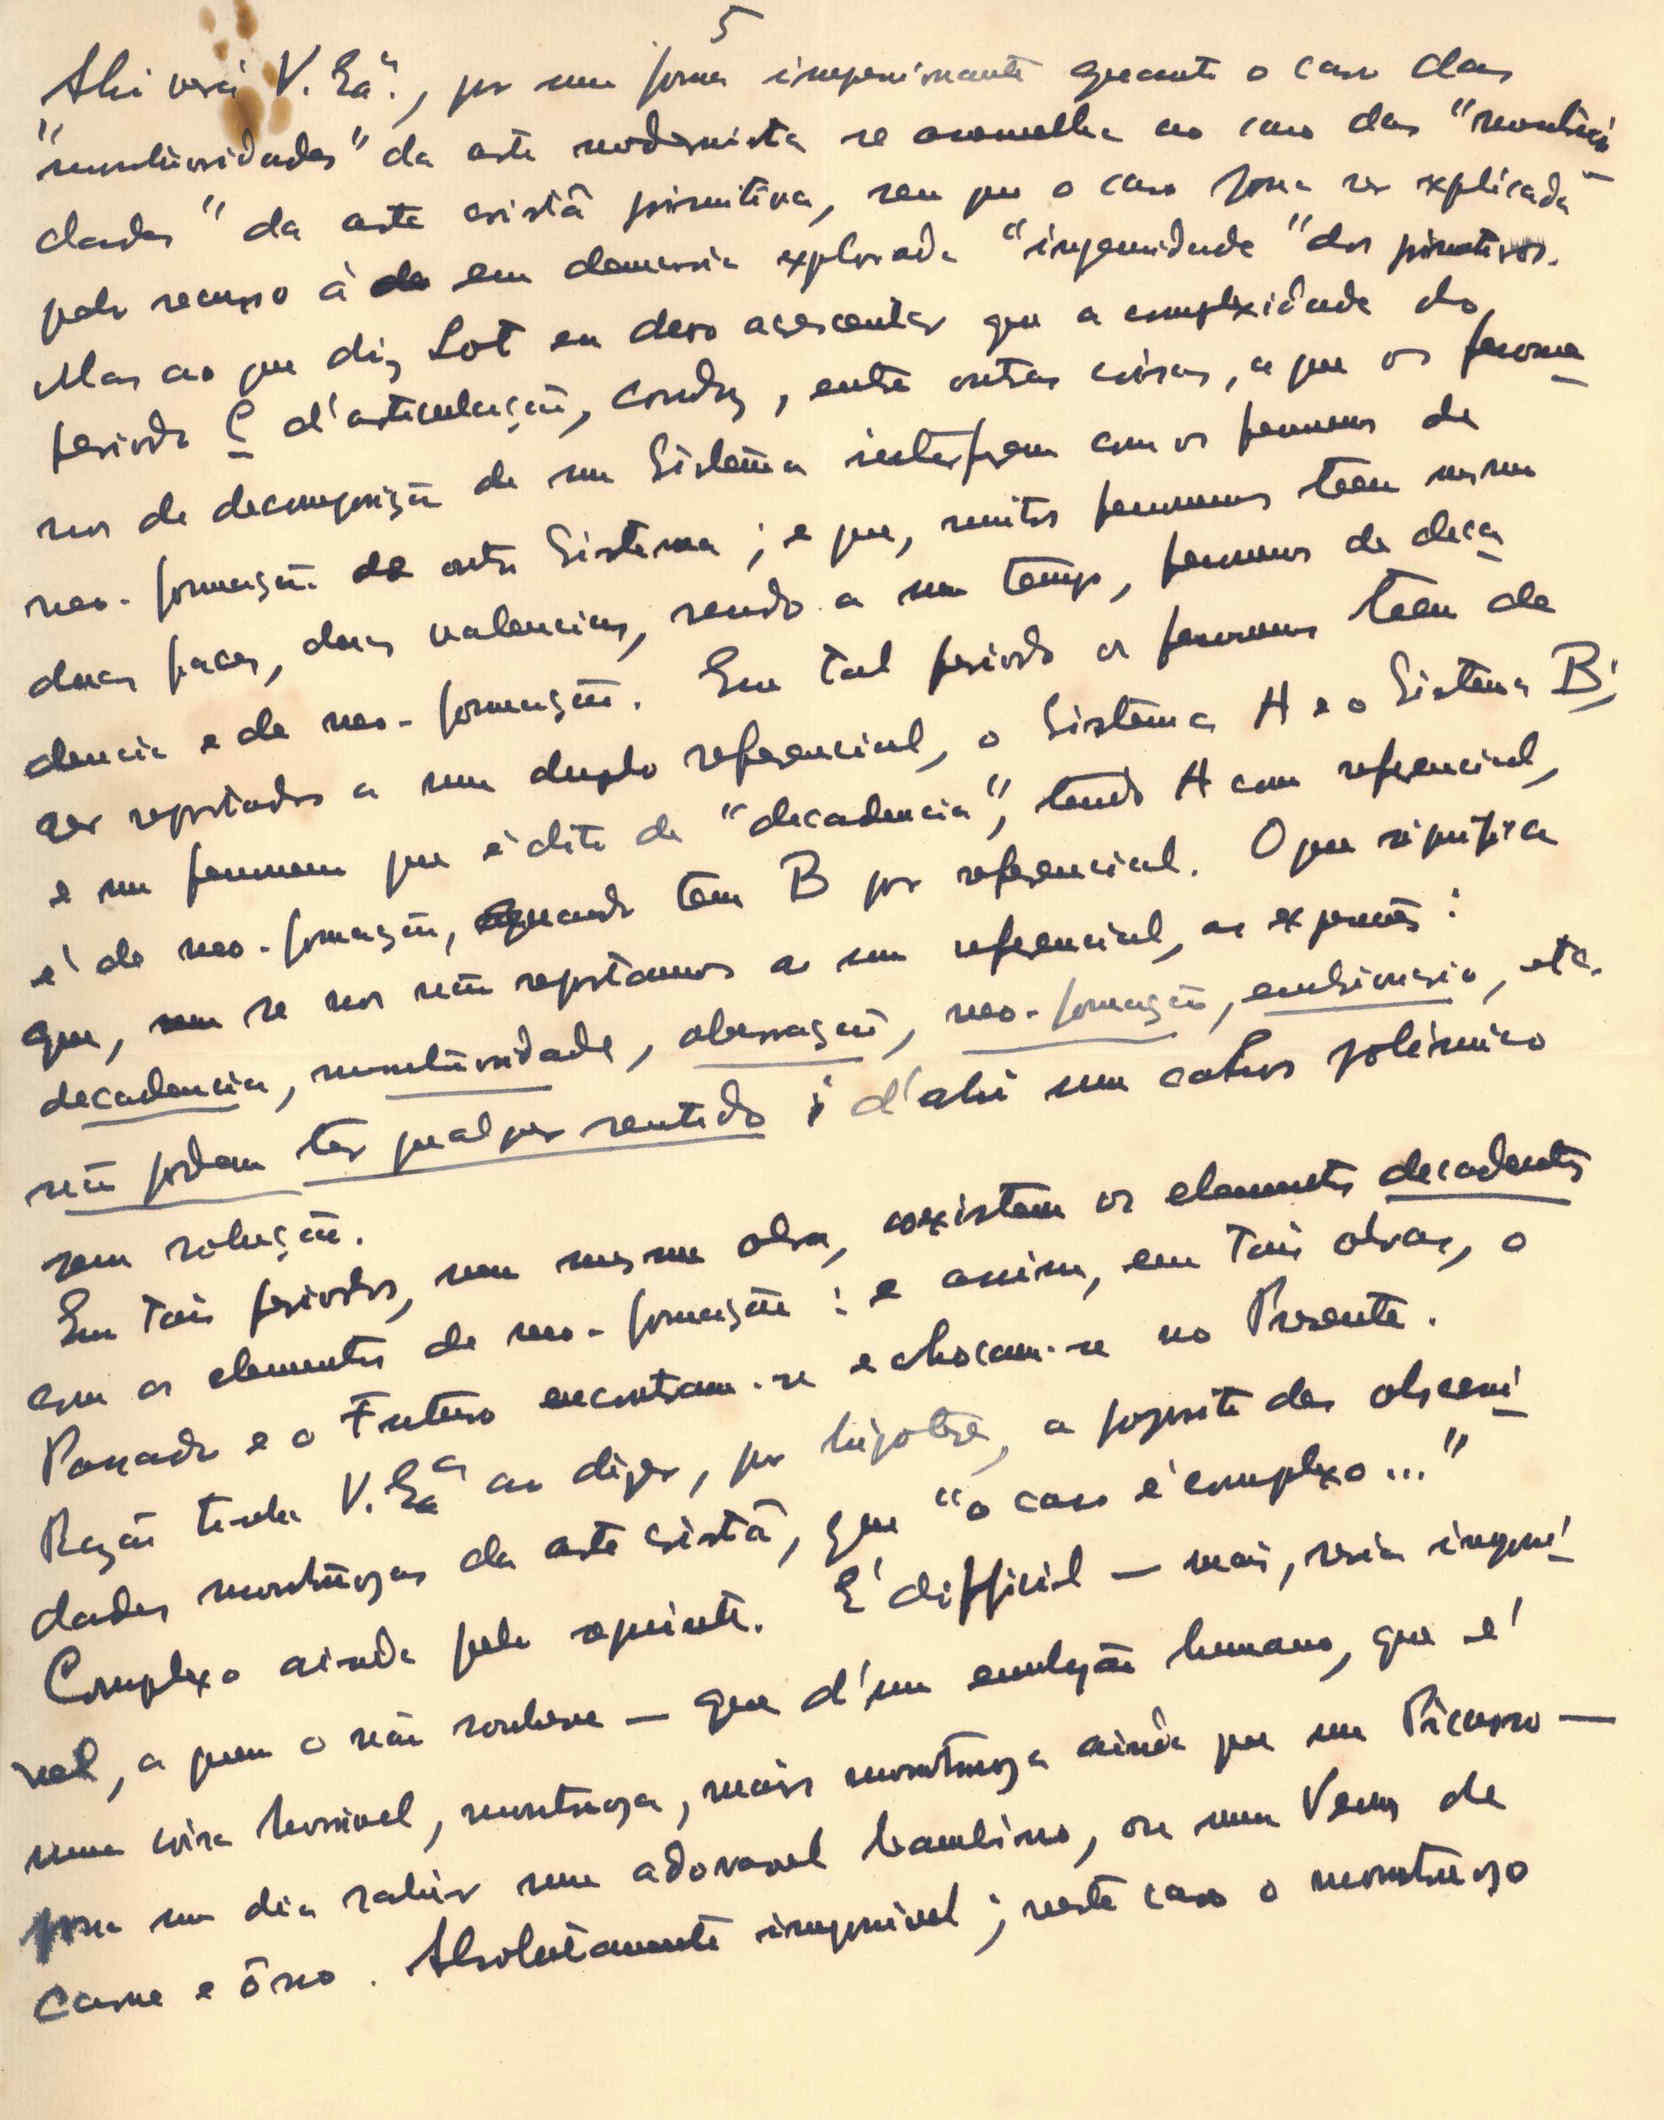 5
Ahi verá V. Exª., por uma forma impressionante quanto o caso das
"monstruosidades" da arte modernista se assemelha ao caso das "monstruosi
dades" da arte cristã primitiva, sem que o caso possa ser explicado
pelo recurso à em demasia explorada "ingenuidade" dos primitivos.
Mas ao que diz Lot eu devo acrescentar que a complexidade do
periodo C d'articulação, conduz, entre outras coisas, a que os fenome
nos de decomposição de um Sistema interferem com os fenomenos de
neo-formação de outro Sistema; e que, muitos fenomenos teem mesmo
duas faces, duas valencias, sendo a um tempo, fenomenos de deca
dencia e de neo-formação. Em tal periodo os fenomenos teem de
ser reportados a um duplo referencial, o Sistema A e o Sistema B;
e um fenomeno que é dito de "decadencia", tendo A com referencial,
é de neo-formação, quando tem B por referencial. O que significa
que, se nos não reportamos a um referencial, as expressões:
decadencia, monstruosidade, aberração, neo-formação, embrionario, etc.
não podem ter qualquer sentido; d'ahi um cahos polémico
sem solução.
Em tais periodos, numa mesma obra, coexistem os elementos decadentes
com os elementos de neo-formação: e assim, em tais obras, o
Passado e o Futuro encontram-se e chocam-se no Presente.
Razão tinha V. Exª ao dizer, por hipotese, a proposito das obsceni
dades monstruosas da arte cristã, que "o caso é complexo..."
Complexo ainda pelo seguinte. É difficil — mais, seria impossi
vel, a quem o não soubesse — que d'um embrião humano, que é
uma coisa horrivel, monstruosa, mais monstruosa ainda que um Picasso —
possa um dia sahir um adoravel bambino, ou uma Venus de
carne e ôsso. Absolutamente impossivel; neste caso o monstruoso